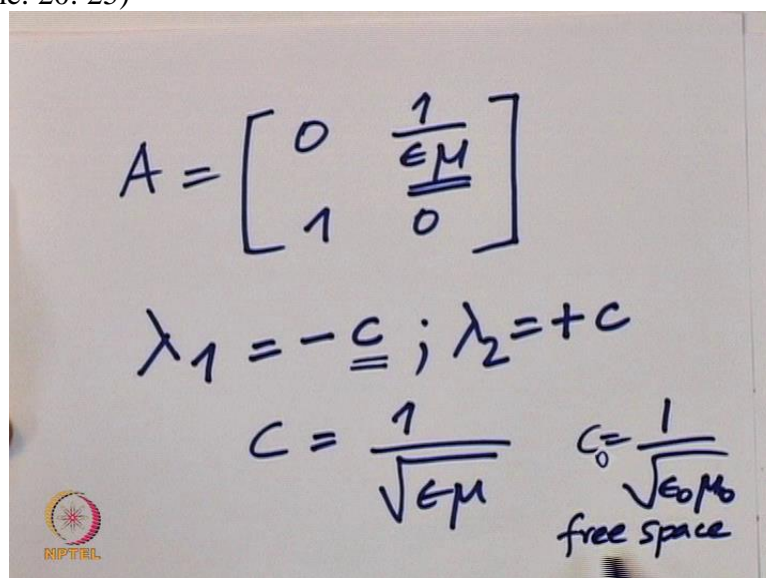 A = [ 0 1/ϵμ
1 0 ]
λ₁ = -c ; λ₂ = +c
c = 1/√ϵμ c₀ = 1/√ϵ₀μ₀
free space
NPTEL